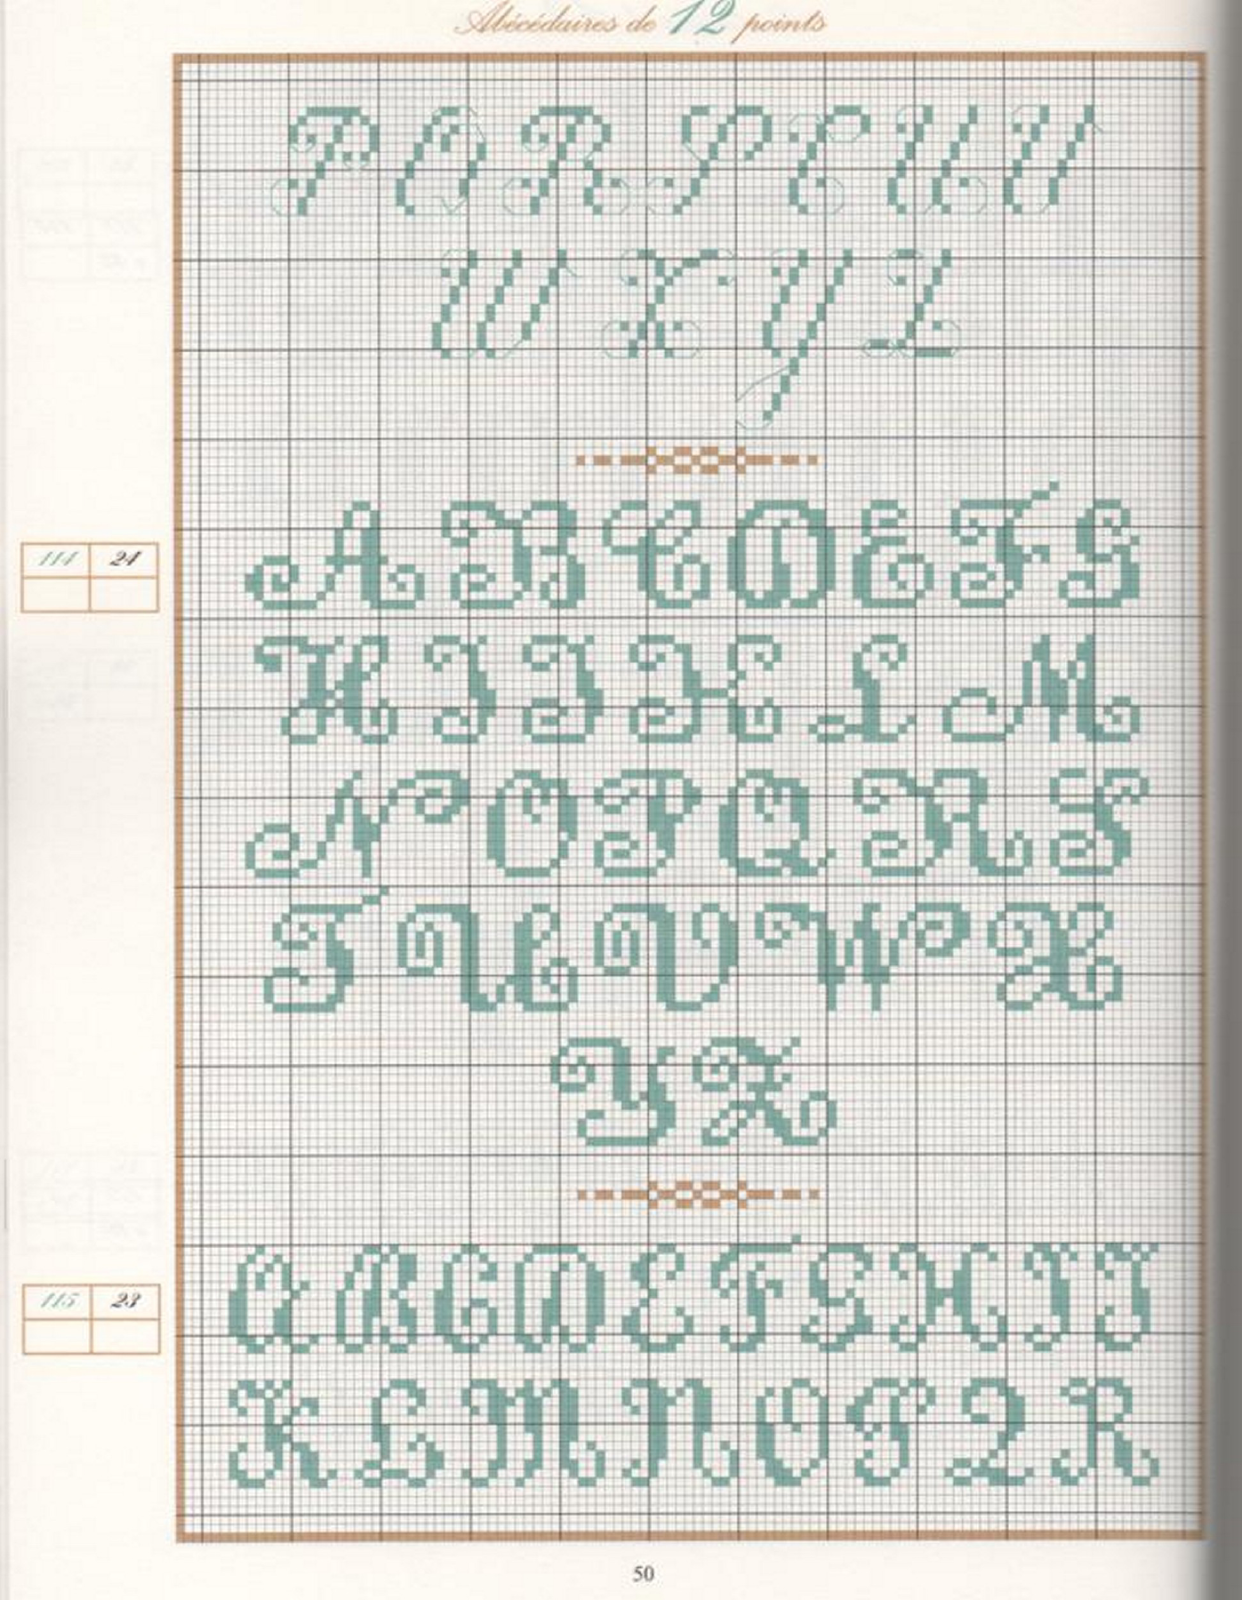 Abécédaires de 12 points
P Q R S T U V
W X Y Z
114 24
A B C D E F G
H I J K L M
N O P Q R S
T U V W X
Y Z
115 23
A B C D E F G H I J
K L M N O P Q R
50